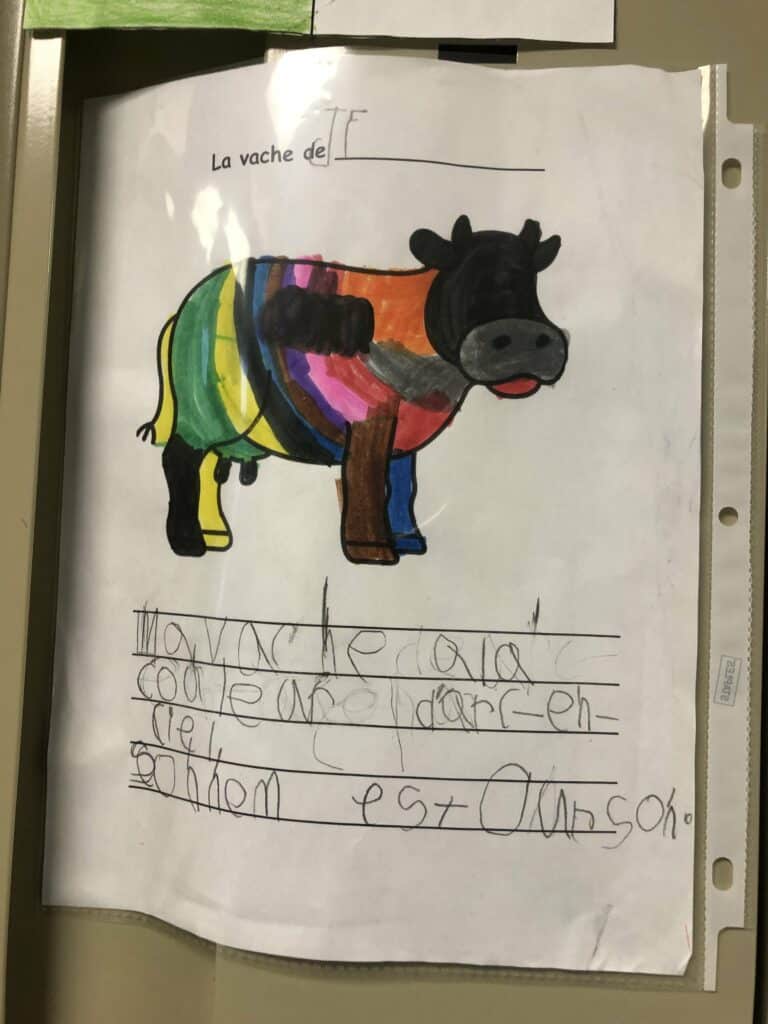 La vache de JF
Ma vache a la
couleure d'arc-en-
ciel,
son nom est Ourson.